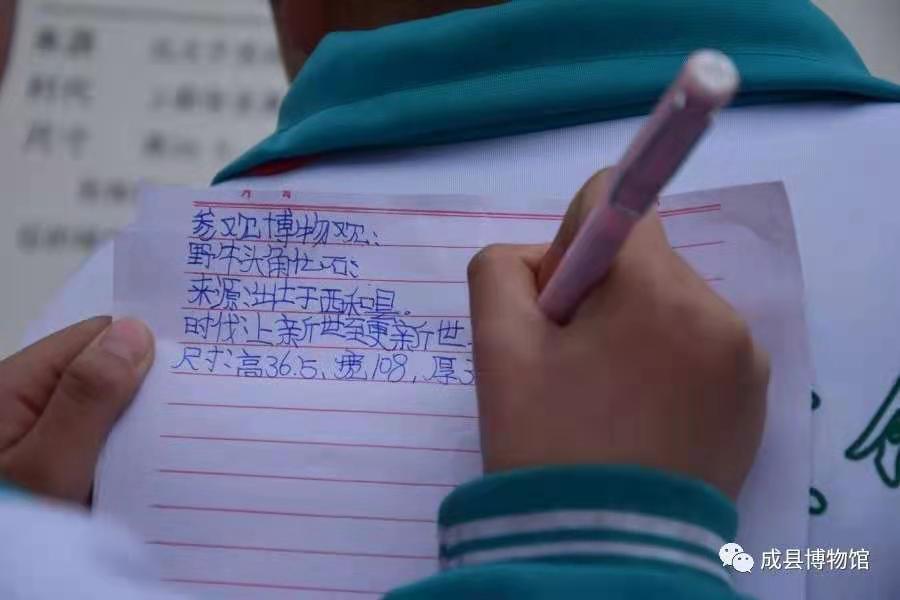 来源
时代
尺寸
参观博物观:
野牛头角化石:
来源:出土于西和县。
时代:上新世至更新世
尺寸:高36.5、宽108,厚3
成县博物馆